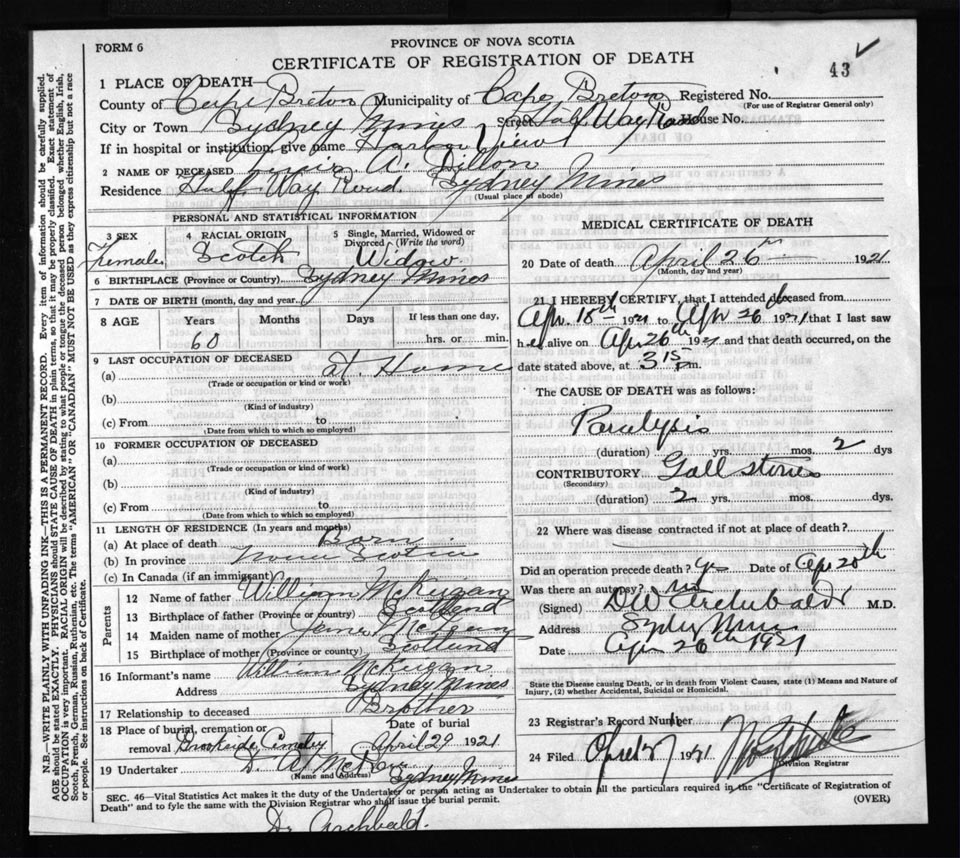 FORM 6
PROVINCE OF NOVA SCOTIA
CERTIFICATE OF REGISTRATION OF DEATH
43
1 PLACE OF DEATH
County of Cape Breton Municipality of Cape Breton Registered No.
(For use of Registrar General only)
City or Town Sydney Mines Street Half Way Road House No.
If in hospital or institution, give name Harbor view
2 NAME OF DECEASED A. Dillon
Residence Half Way Road. Sydney Mines
(Usual place of abode)
PERSONAL AND STATISTICAL INFORMATION
3 SEX
Female
4 RACIAL ORIGIN
Scotch
5 Single, Married, Widowed or Divorced (Write the word)
Widow
6 BIRTHPLACE (Province or Country) Sydney Mines
7 DATE OF BIRTH (month, day and year)
8 AGE Years Months Days If less than one day,
60 hrs. or min.
9 LAST OCCUPATION OF DECEASED
(a) At Home
(Trade or occupation or kind of work)
(b)
(Kind of industry)
(c) From to
(Date from which to which so employed)
10 FORMER OCCUPATION OF DECEASED
(a)
(Trade or occupation or kind of work)
(b)
(Kind of industry)
(c) From to
(Date from which to which so employed)
11 LENGTH OF RESIDENCE (In years and months)
(a) At place of death Born
(b) In province Nova Scotia
(c) In Canada (if an immigrant)
Parents
12 Name of father William McKigan
13 Birthplace of father (Province or country) Scotland
14 Maiden name of mother
15 Birthplace of mother (Province or country) Scotland
16 Informant's name William McKigan
Address Sydney Mines
17 Relationship to deceased Brother
18 Place of burial, cremation or removal Brookside Cemetery
Date of burial
April 29 1921
19 Undertaker D. A.
(Name and Address) Sydney Mines
MEDICAL CERTIFICATE OF DEATH
20 Date of death April 26th 1921
(Month, day and year)
21 I HEREBY CERTIFY, that I attended deceased from
Apr. 18th 1921 to Apr 26 1921 that I last saw
her alive on Apr 26th 1921 and that death occurred, on the
date stated above, at 3 15 p.m.
The CAUSE OF DEATH was as follows:
Paralysis
(duration) yrs. mos. 2 dys
CONTRIBUTORY Gall stones
(Secondary)
(duration) 2 yrs. mos. dys.
22 Where was disease contracted if not at place of death?
Did an operation precede death? yes Date of Apr 20th
Was there an autopsy? no
(Signed) DW Archibald M.D.
Address Sydney Mines
Date Apr 26th 1921
State the Disease causing Death, or in death from Violent Causes, state (1) Means and Nature of
Injury, (2) whether Accidental, Suicidal or Homicidal.
23 Registrar's Record Number
24 Filed April 27 1921
Division Registrar
SEC. 46—Vital Statistics Act makes it the duty of the Undertaker or person acting as Undertaker to obtain all the particulars required in the "Certificate of Registration of
Death" and to fyle the same with the Division Registrar who shall issue the burial permit.
(OVER)
Dr Archbald.
N.B.—WRITE PLAINLY WITH UNFADING INK—THIS IS A PERMANENT RECORD. Every item of information should be carefully supplied.
AGE should be stated EXACTLY. PHYSICIANS should STATE CAUSE OF DEATH in plain terms, so that it may be properly classified. Exact statement of
OCCUPATION is very important. RACIAL ORIGIN will be described by stating to what people or tongue the deceased person belonged whether English, Irish,
Scotch, French, German, Russian, Ruthenian, etc. The terms "AMERICAN" OR "CANADIAN" MUST NOT BE USED as they express citizenship but not a race
or people. See instructions on back of Certificate.